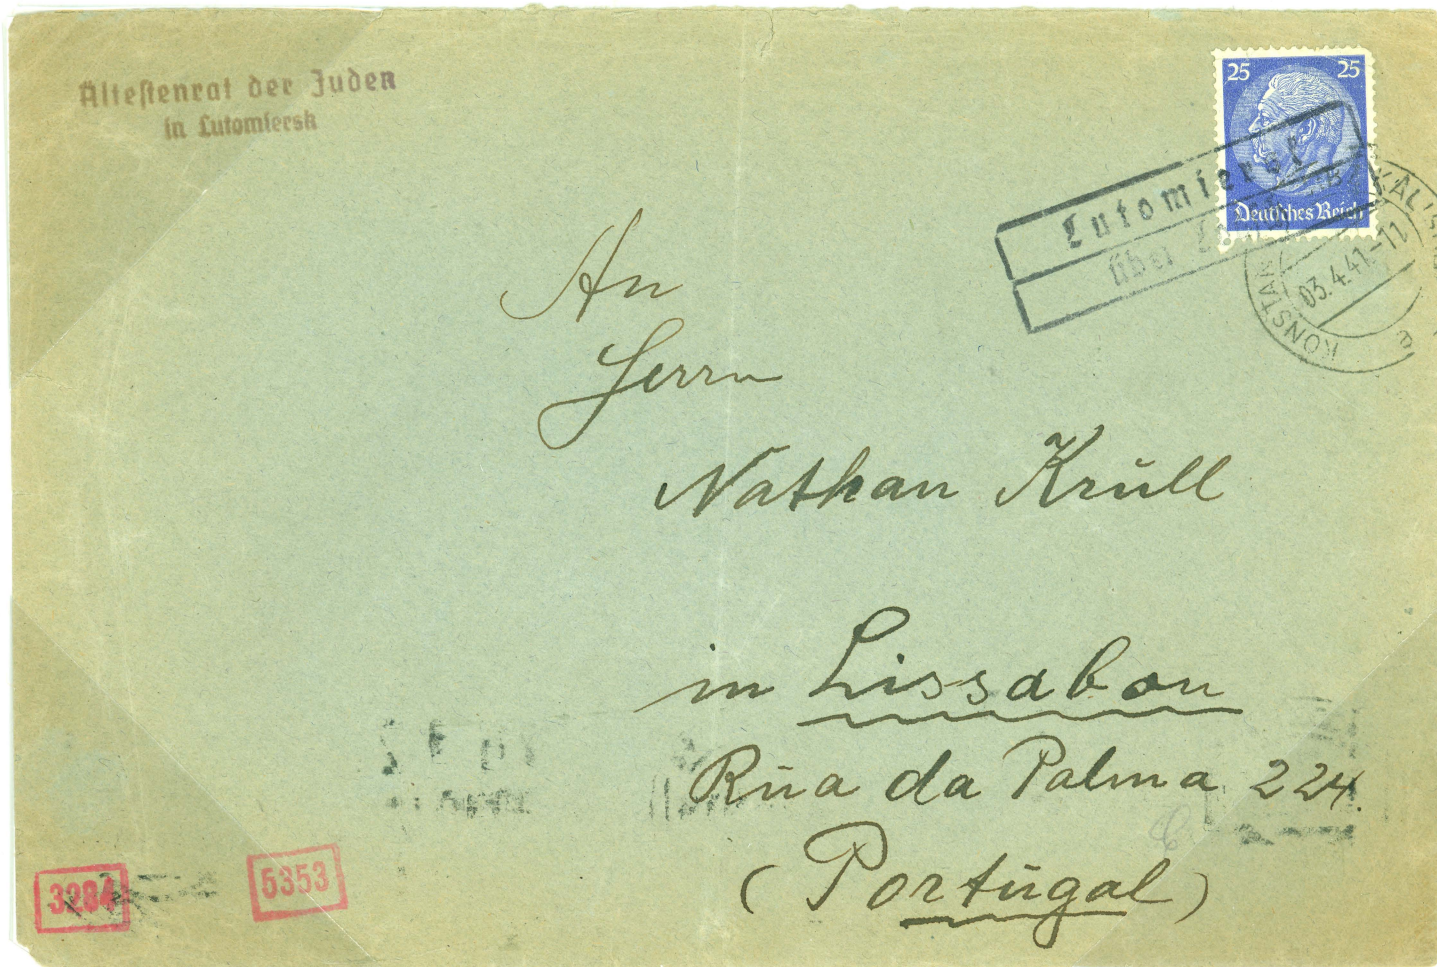 Ältestenrat der Juden
in Lutomiersk
25 25
Deutsches Reich
Lutomiersk
über
03.4.41-11
An
Herrn
Nathan Krull
in Lissabon
Rua da Palma 224.
(Portugal)
3284
5353